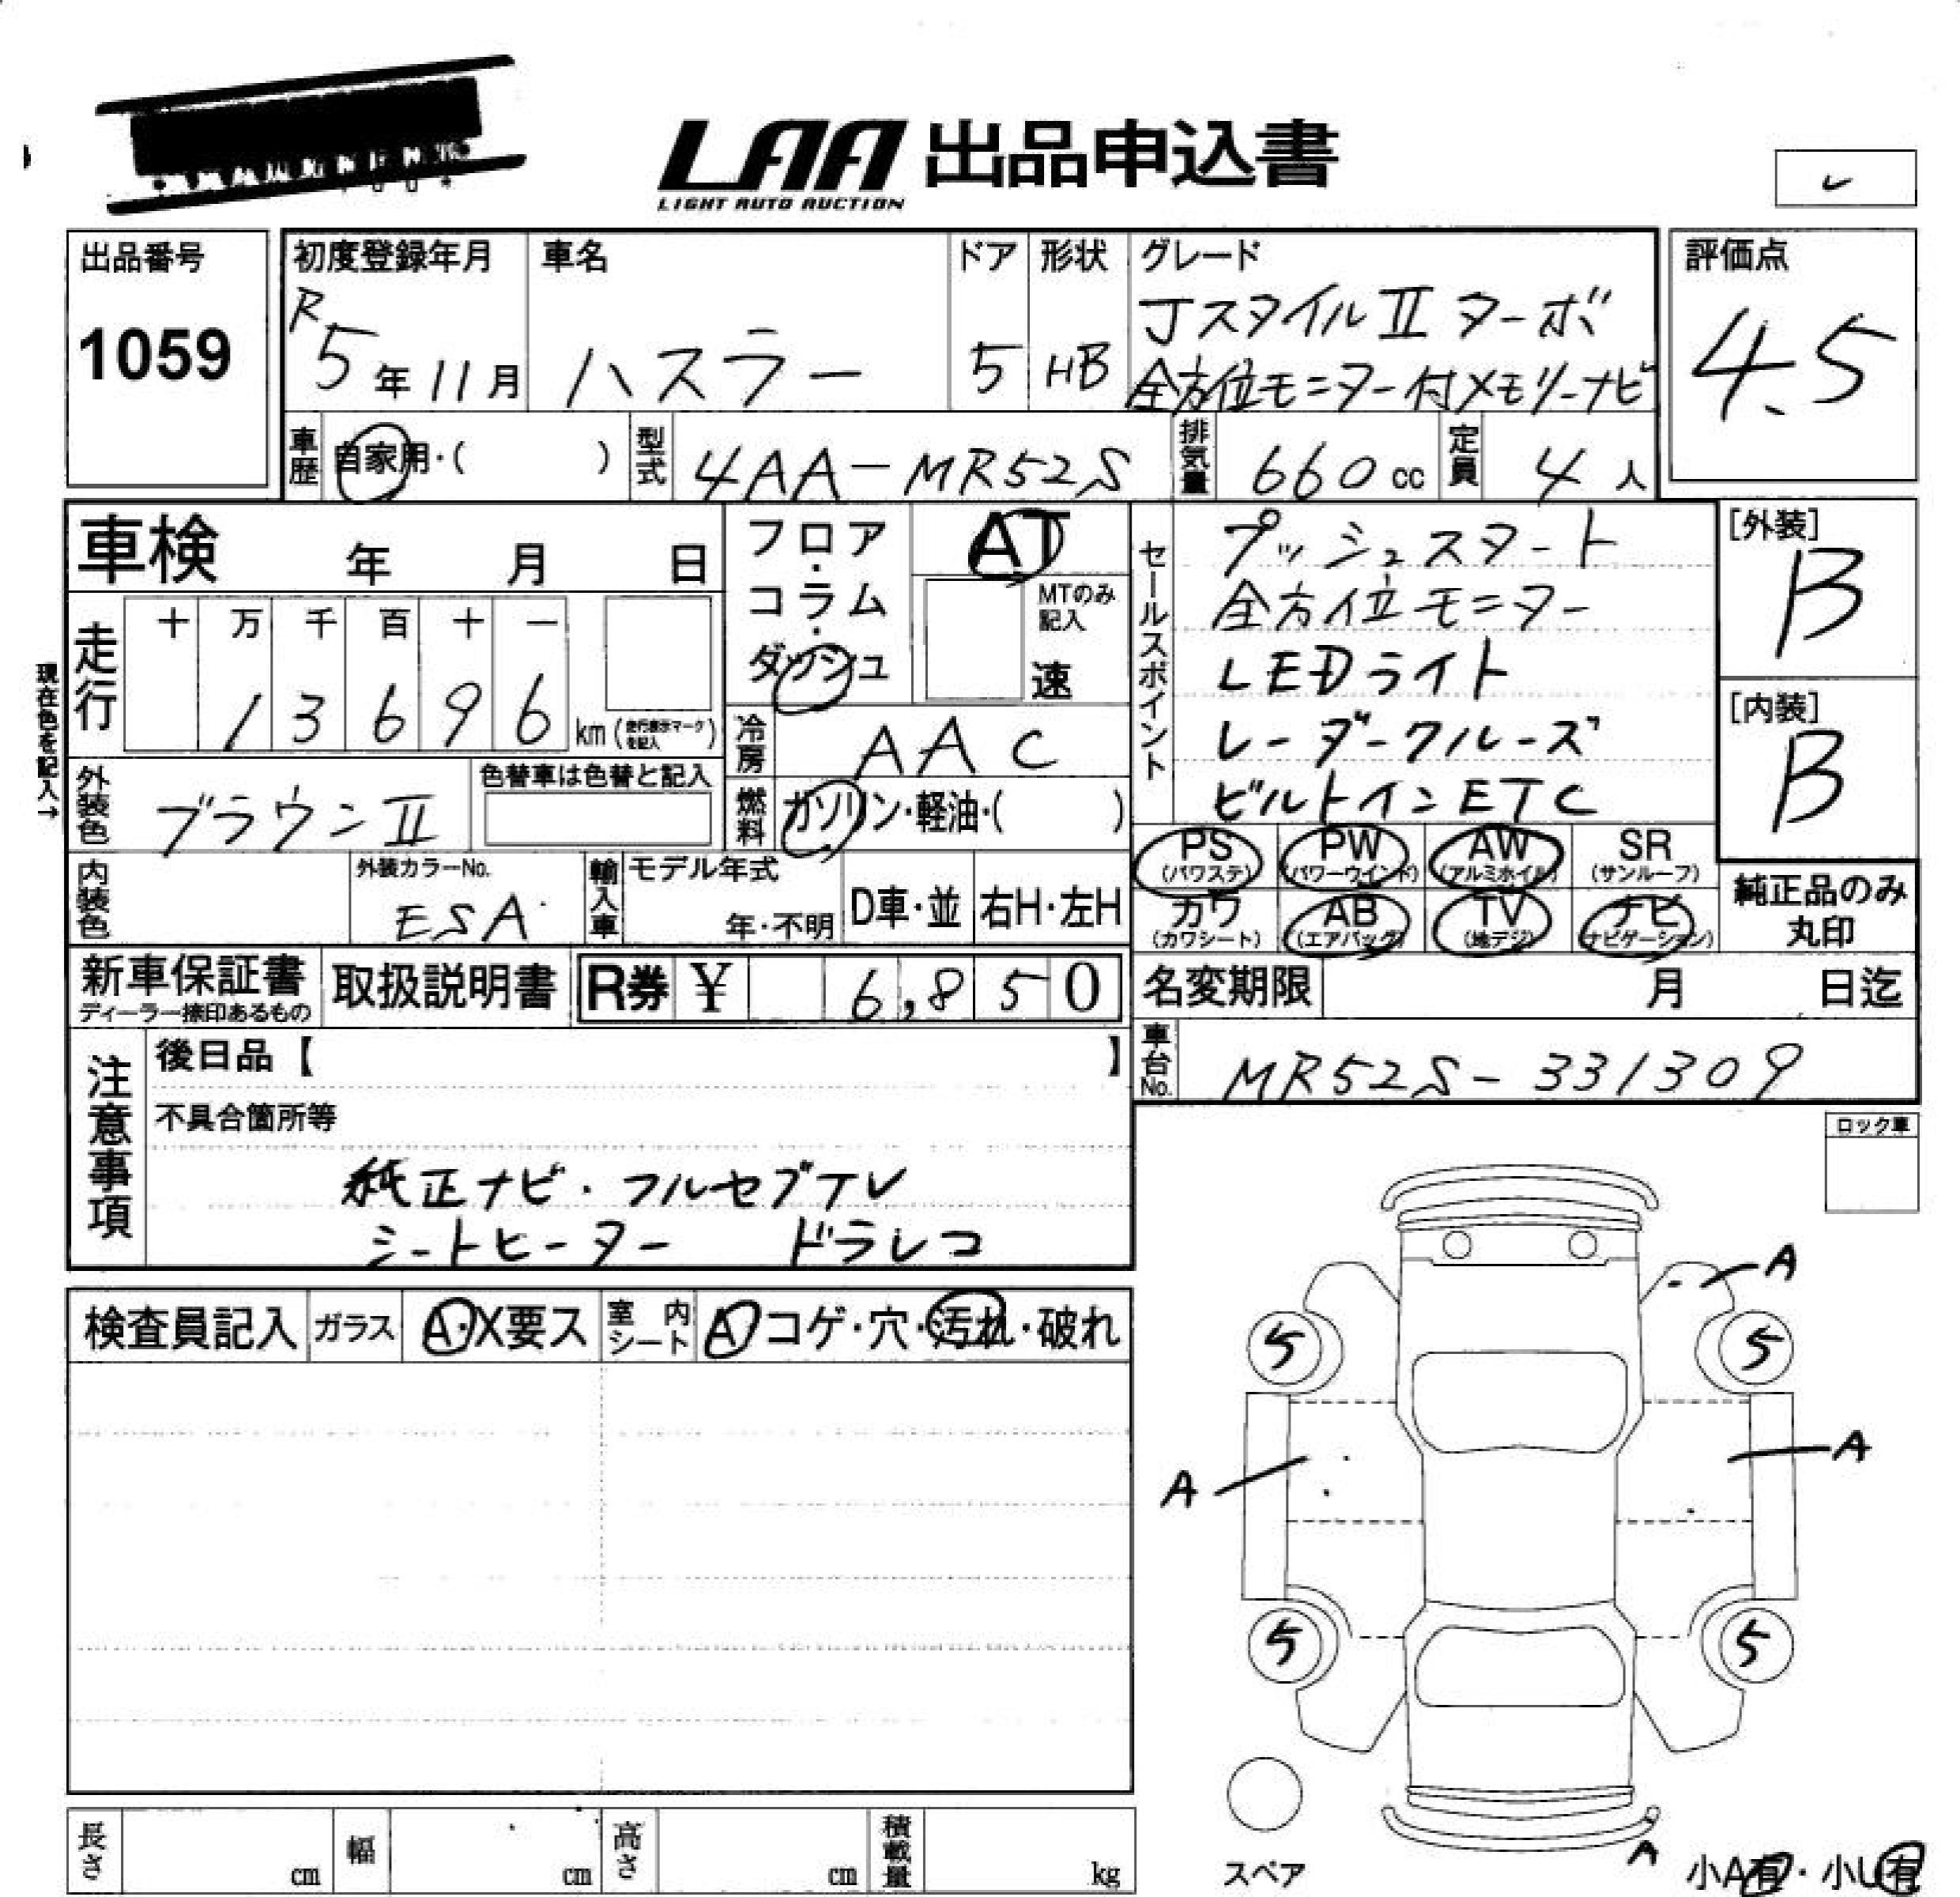 LAA 出品申込書
LIGHT AUTO AUCTION
出品番号
1059
初度登録年月
R5年11月
車名
ハスラー
ドア
5
形状
HB
グレード
JスタイルⅡ ターボ
全方位モニター付メモリーナビ
評価点
4.5
車歴
自家用・( )
型式
4AA-MR52S
排気量
660cc
定員
4人
車検 年 月 日
フロア・コラム・ダッシュ
AT
MTのみ記入
速
現在色を記入→
走行
十 万 千 百 十 一
1 3 6 9 6 km (走行表示マークを記入)
冷房
AAC
外装色
ブラウンⅡ
色替車は色替と記入
燃料
ガソリン・軽油・( )
内装色
外装カラーNo.
ESA
輸入車
モデル年式
年・不明
D車・並
右H・左H
セールスポイント
プッシュスタート
全方位モニター
LEDライト
レーダークルーズ
ビルトインETC
[外装]
B
[内装]
B
PS (パワステ)
PW (パワーウインド)
AW (アルミホイル)
SR (サンルーフ)
カワ (カワシート)
AB (エアバッグ)
TV (地デジ)
ナビ (ナビゲーション)
純正品のみ丸印
新車保証書
ディーラー捺印あるもの
取扱説明書
R券 ¥ 6,850
名変期限 月 日迄
車台No.
MR52S-331309
注意事項
後日品【 】
不具合箇所等
純正ナビ・フルセグTV
シートヒーター ドラレコ
ロック車
検査員記入
ガラス
A・X要ス
室内シート
A コゲ・穴・汚れ・破れ
A
5 5
A A
5 5
スペア
A
小A有・小U有
長さ cm
幅 cm
高さ cm
積載量 kg